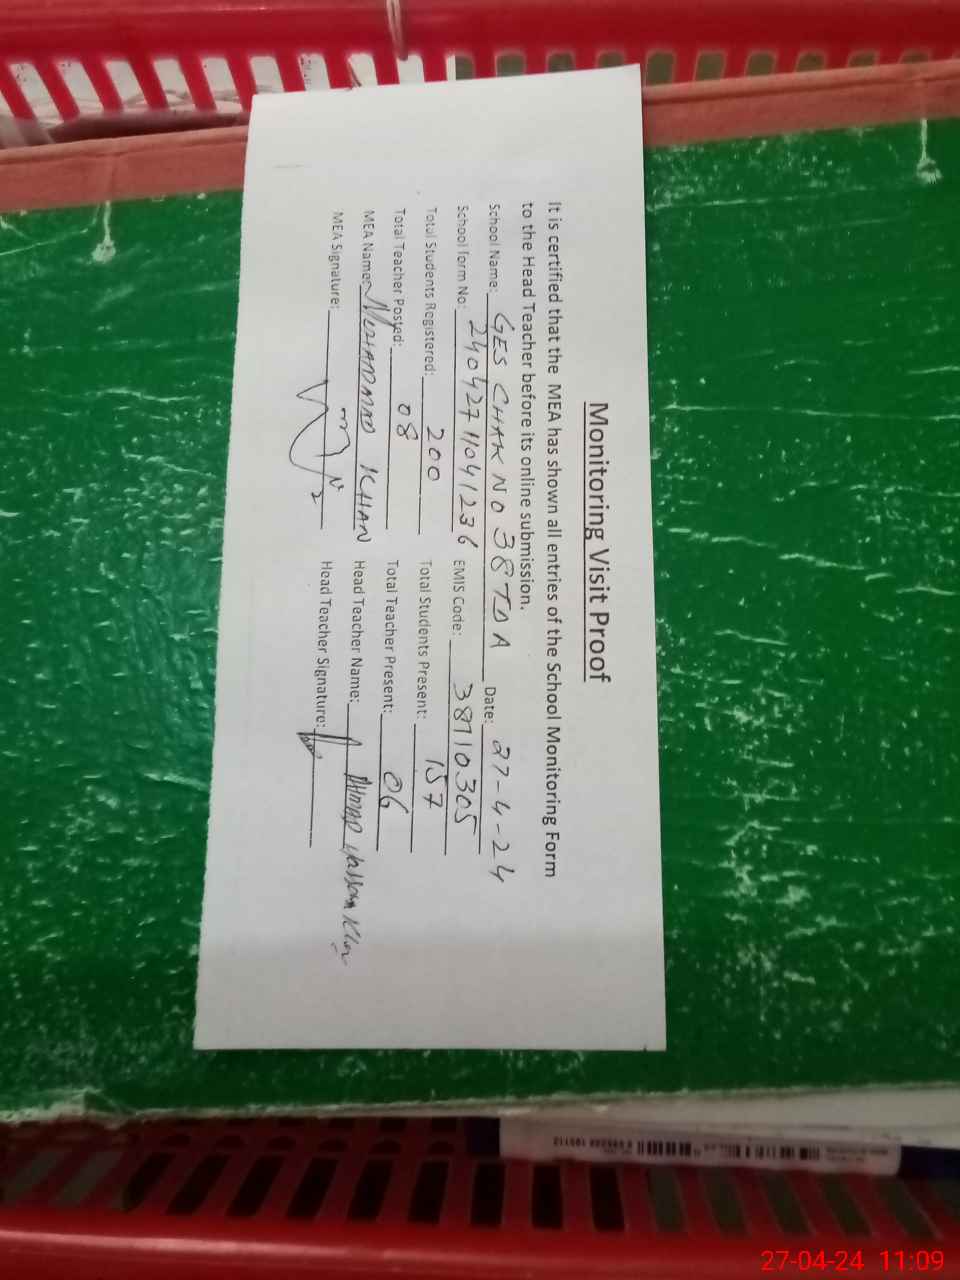 Monitoring Visit Proof
It is certified that the MEA has shown all entries of the School Monitoring Form
to the Head Teacher before its online submission.
School Name: GES CHAK NO 38 TDA Date: 27-4-24
School form No: 24042711041236 EMIS Code: 38710305
Total Students Registered: 200 Total Students Present: 157
Total Teacher Posted: 08 Total Teacher Present: 06
MEA Name: MUHAMMAD KHAN Head Teacher Name: AHMAD Hassan Khan
MEA Signature: Head Teacher Signature:
27-04-24 11:09